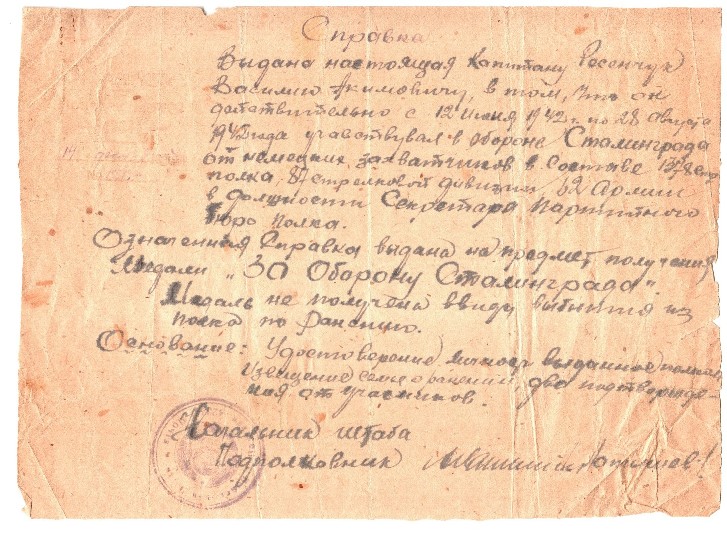 Справка
Выдана настоящая Капитану Росенчук
Василию Акимовичу, в том, что он
действительно с 12 Июня 1942 г. по 28 августа
1942 года участвовал в обороне Сталинграда
от немецких захватчиков в составе 1378 стр.
полка, 87 стрелковой дивизии 62 Армии
в должности Секретаря Партийного
Бюро полка.
Означенная Справка выдана на предмет получения
Медали „За Оборону Сталинграда".
Медаль не получена ввиду выбытия из
полка по ранению.
Основание: Удостоверение личности выданное полком
Извещение семье о ранении, два подтвержде-
ния от участников.
Начальник штаба
Подполковник